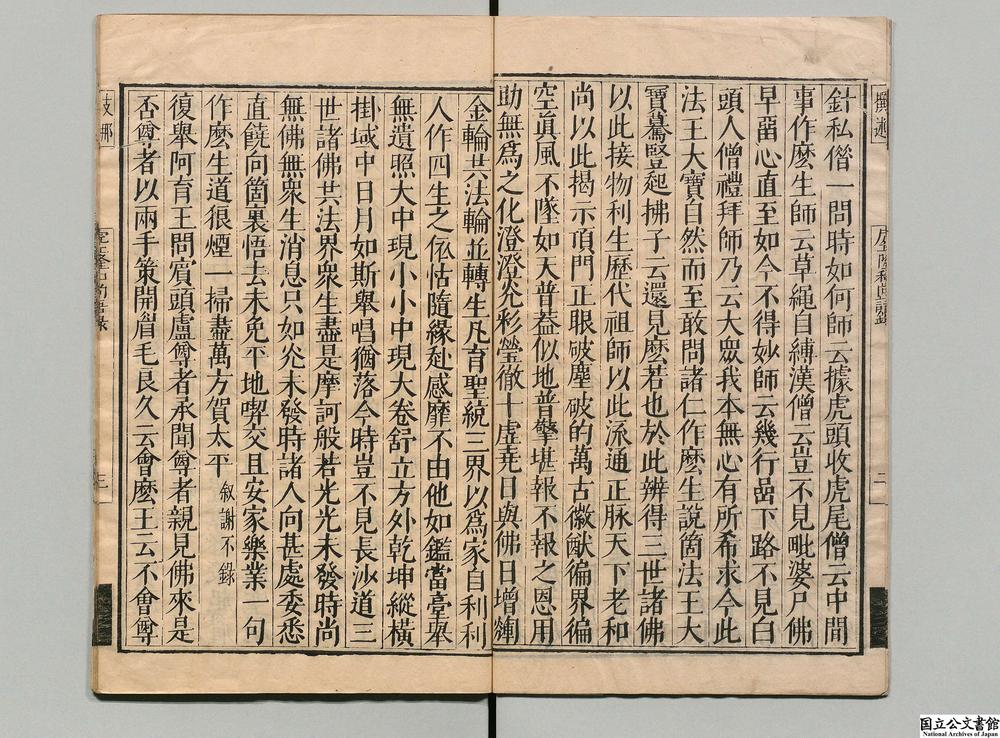 針私僣一問時如何師云據虎頭收虎尾僧云中間
事作麽生師云草繩自縛漢僧云豈不見毗婆尸佛
早留心直至如今不得妙師云幾行喦下路不見白
頭人僧禮拜師乃云大衆我本無心有所希求今此
法王大寶自然而至敢問諸仁作麽生說箇法王大
寶驀竪起拂子云還見麽若也於此辨得三世諸佛
以此接物利生歷代祖師以此流通正脉天下老和
尚以此揭示頂門正眼破塵破的萬古徽猷徧界徧
空眞風不墜如天普葢似地普擎堪報不報之恩用
助無爲之化澄澄光彩瑩徹十虛堯日與佛日增輝
金輪共法輪並轉生凡育聖統三界以爲家自利利
人作四生之依怙隨緣赴感靡不由他如鑑當臺擧
無遺照大中現小小中現大卷舒立方外乾坤縱橫
掛域中日月如斯舉唱猶落今時豈不見長沙道三
世諸佛共法界衆生盡是摩訶般若光光未發時尚
無佛無衆生消息只如光未發時諸人向甚處委悉
直饒向箇裏悟去未免平地喫交且安家樂業一句
作麽生道狼煙一掃盡萬方賀太平 叙謝不錄
復舉阿育王問賓頭盧尊者承聞尊者親見佛來是
否尊者以兩手策開眉毛良久云會麽王云不會尊
三
二
国立公文書館
National Archives of Japan